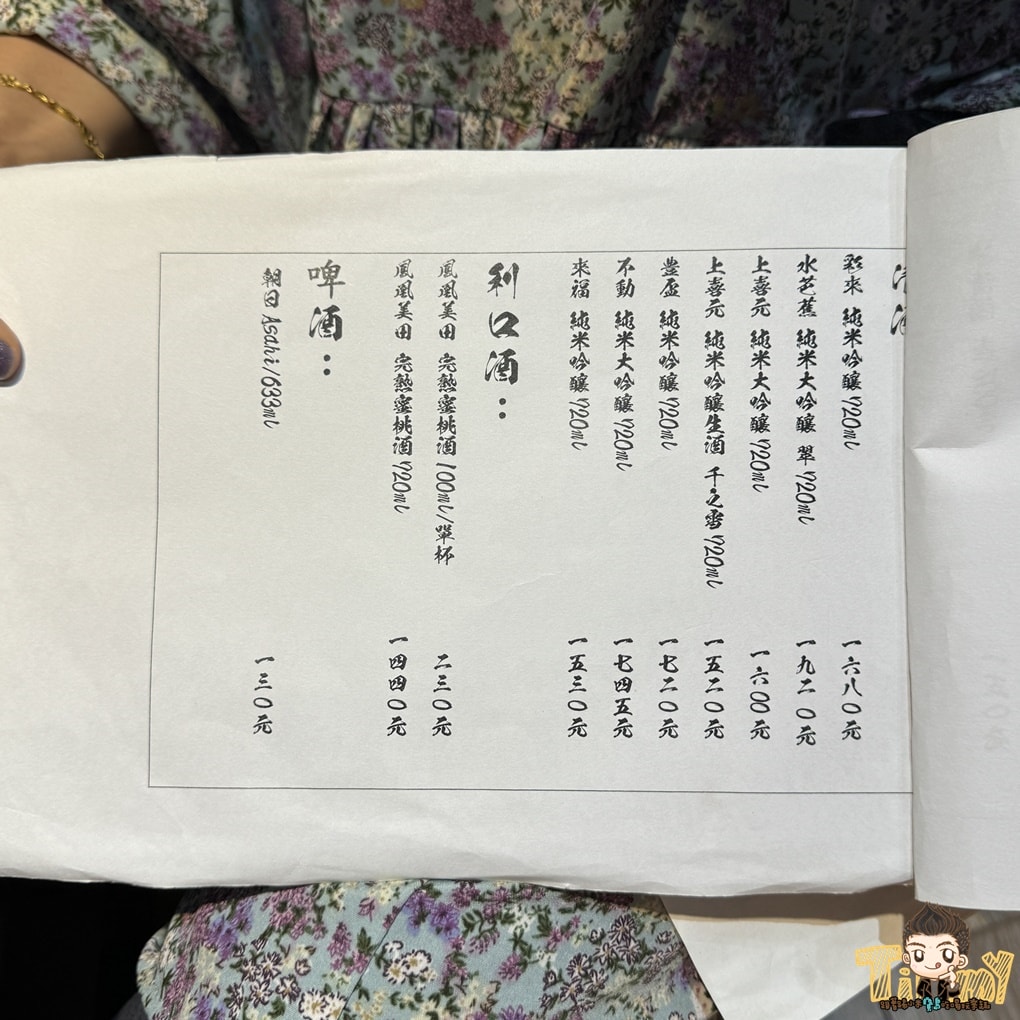 清酒
彩來 純米吟釀 720ml 一六八〇元
水芭蕉 純米大吟釀 翠 720ml 一九二〇元
上喜元 純米大吟釀 720ml 一六〇〇元
上喜元 純米吟釀生酒 千之雪 720ml 一五二〇元
豊盃 純米吟釀 720ml 一七二〇元
不動 純米大吟釀 720ml 一七四五元
來福 純米吟釀 720ml 一五三〇元
利口酒：
鳳凰美田 完熟蜜桃酒 100ml/單杯 二三〇元
鳳凰美田 完熟蜜桃酒 720ml 一四四〇元
啤酒：
朝日 Asahi/633ml 一三〇元
TiMMY